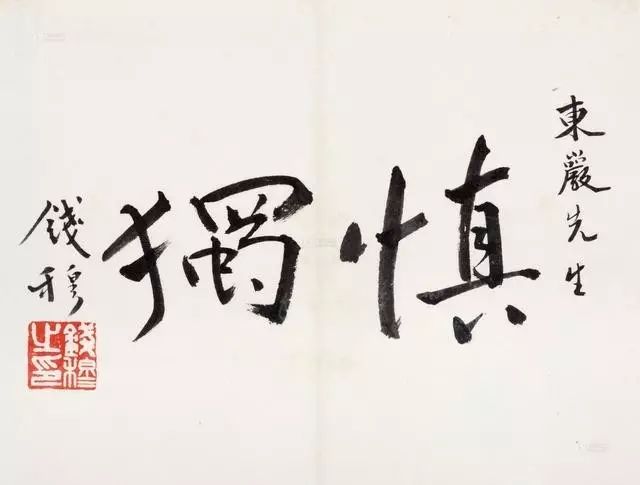 東嚴先生
慎獨
錢穆
錢穆之印